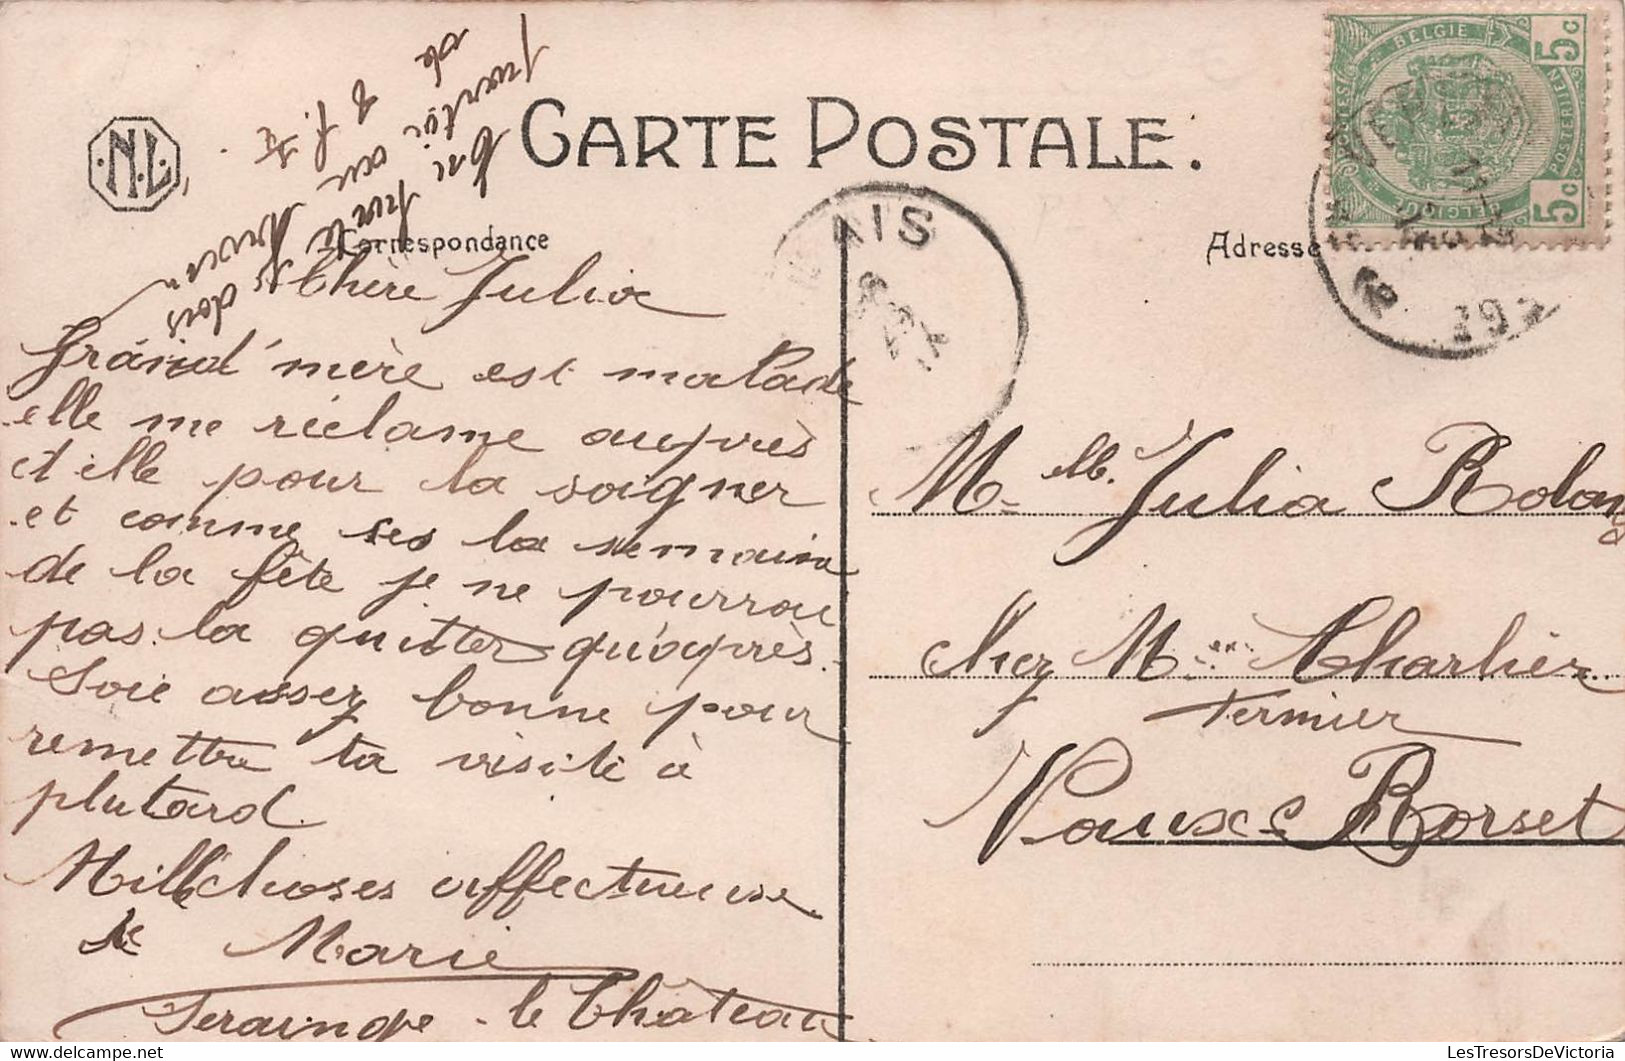 CARTE POSTALE.
N.L.
Correspondance
Adresse
BELGIE
BELGIQUE
5c
5c
AIS
Chère Julia
Grand'mère est malade
elle me réclame auprès
d'elle pour la soigner
et comme ses la semaine
de la fête je ne pourrai
pas la quitter qu'après.
Soie assez bonne pour
remettre ta visite à
plutard.
Mille choses affectueuse
de Marie
Seraing-le Château
Melle Julia Rolans
Chez Mr Charlier
Fermier
Vaux & Borset
LesTresorsDeVictoria